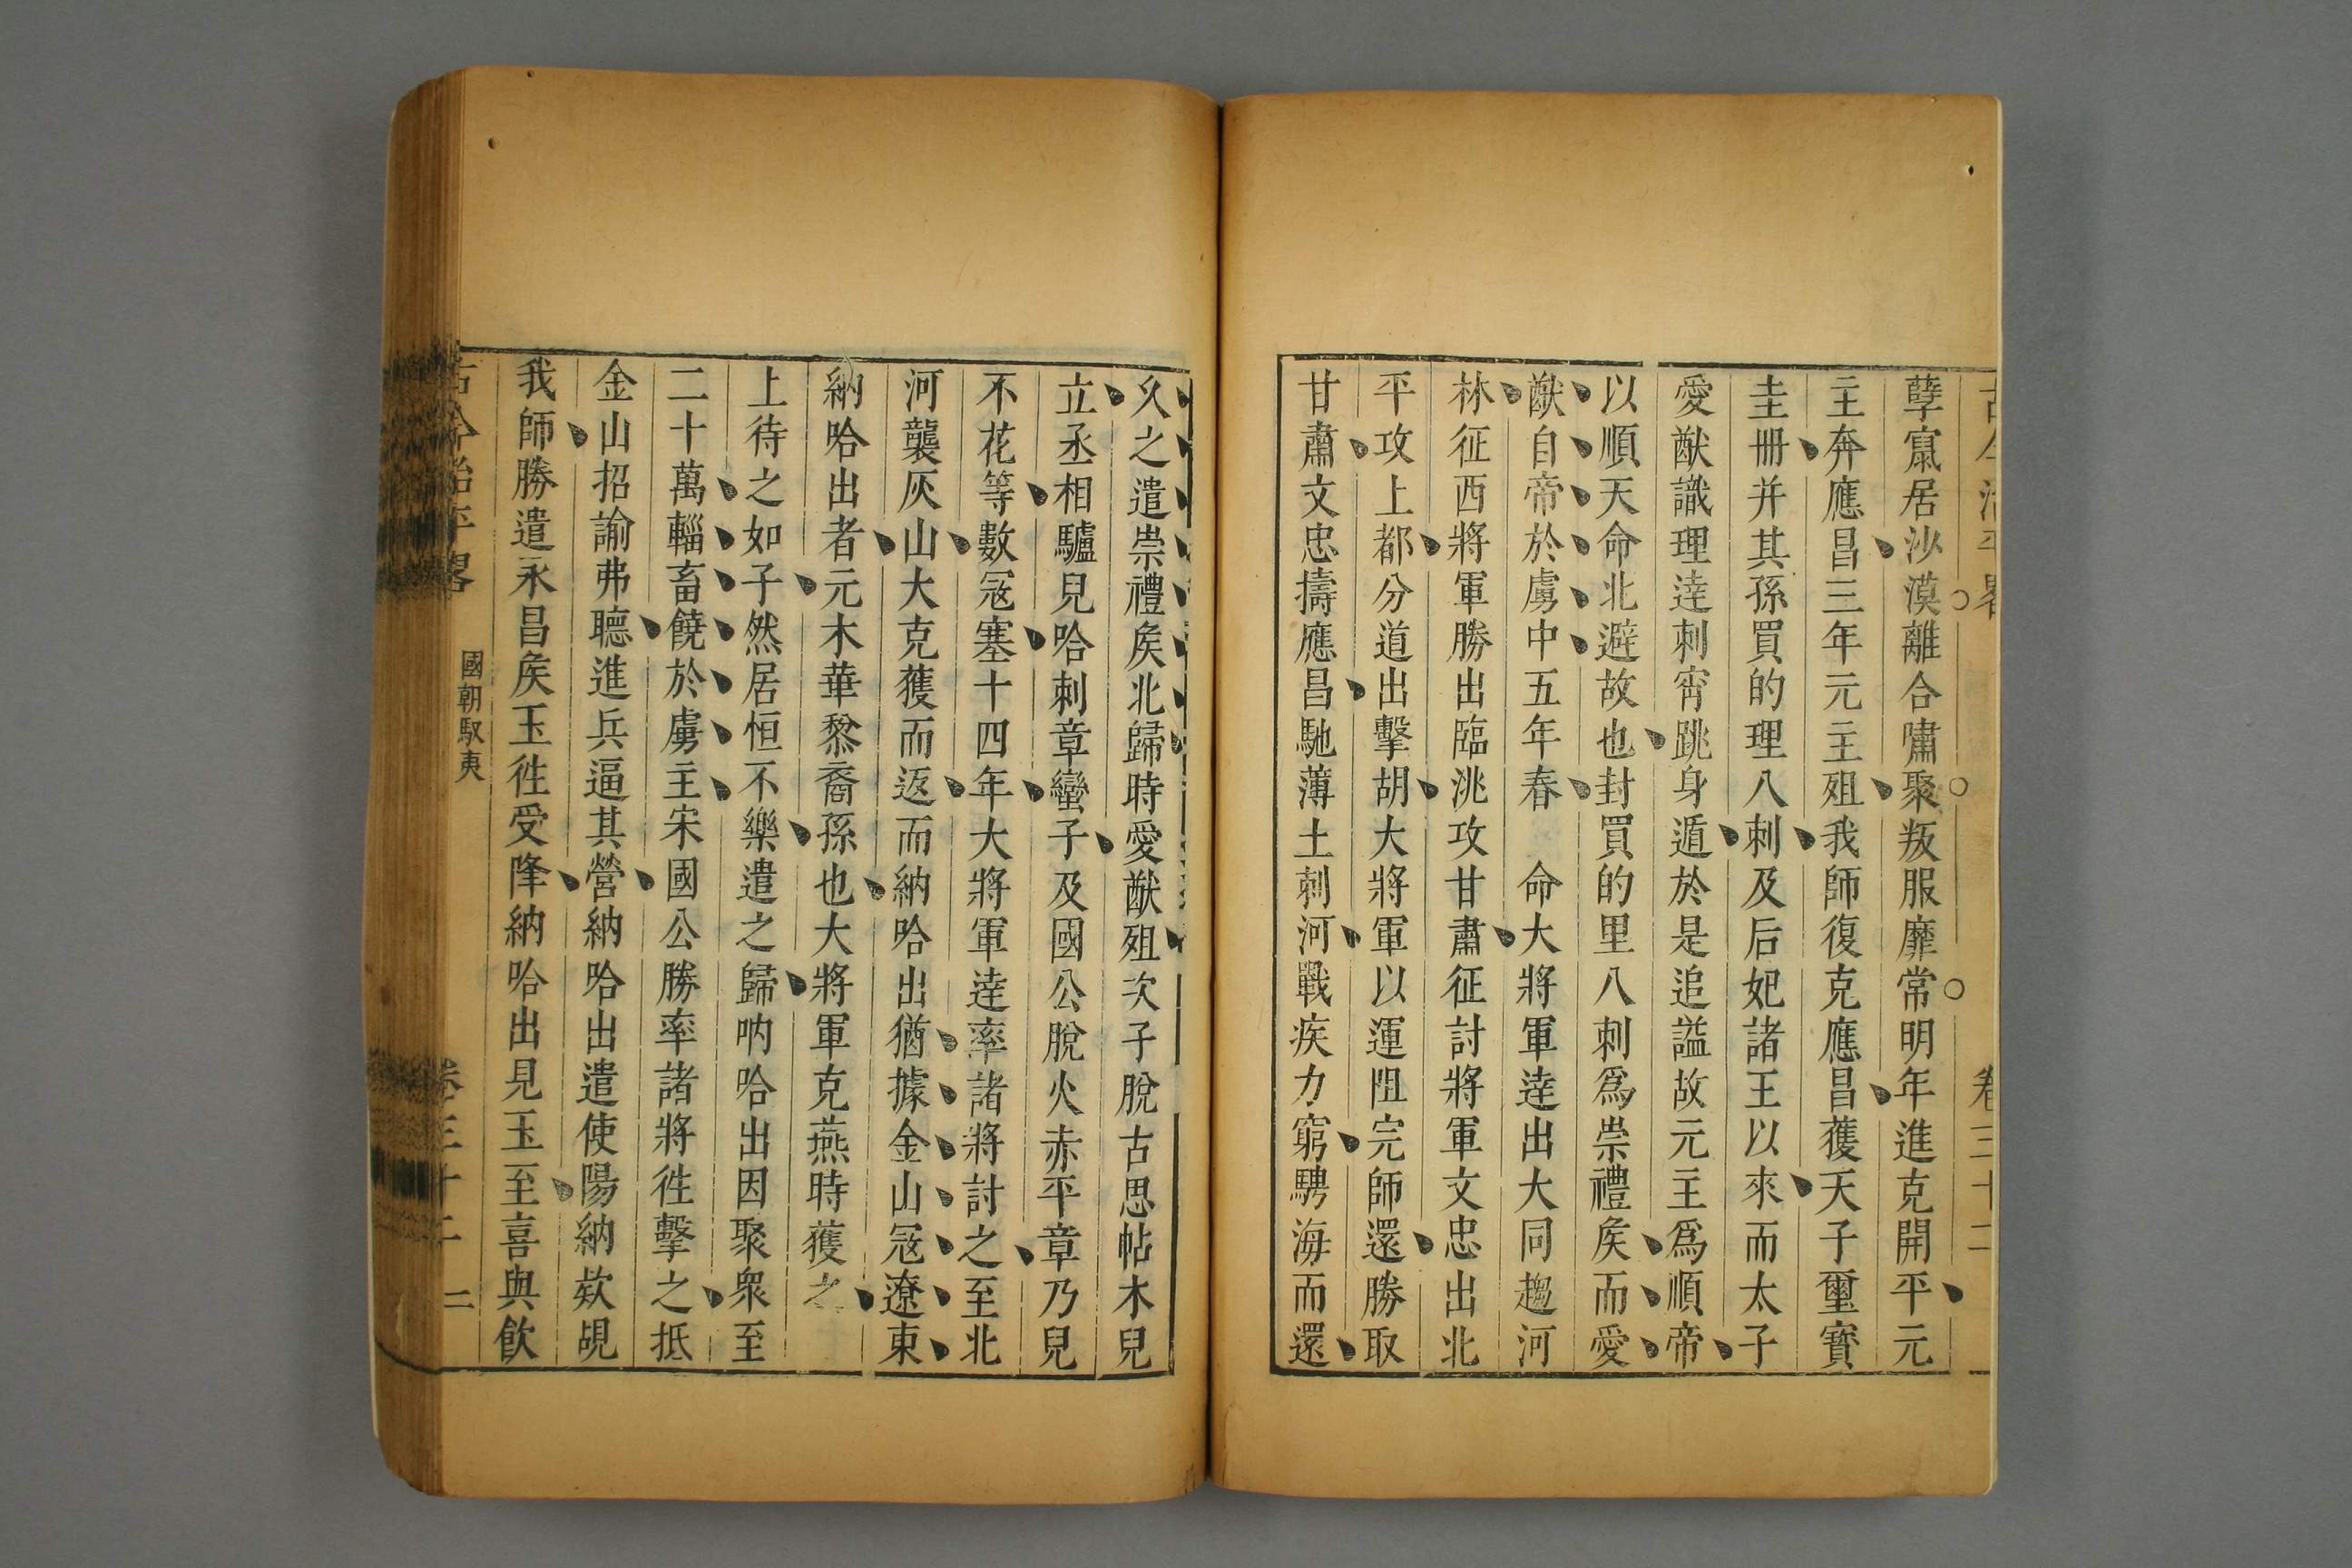 古今治平畧
卷三十二
孽䆮居沙漠離合嘯聚叛服靡常明年進克開平元
主奔應昌三年元主殂我師復克應昌獲天子璽寳
圭冊并其孫買的理八刺及后妃諸王以來而太子
愛猷識理逹刺宵跳身遁於是追謚故元主爲順帝
以順天命北避故也封買的里八刺爲崇禮矦而愛
猷自帝於虜中五年春 命大將軍逹出大同趨河
林征西將軍勝出臨洮攻甘肅征討將軍文忠出北
平攻上都分道出擊胡大將軍以運阻完師還勝取
甘肅文忠擣應昌馳薄土刺河戰疾力窮騁海而還
乆之遣崇禮矦北歸時愛猷殂次子脫古思帖木兒
立丞相驢兒哈刺章蠻子及國公脫火赤平章乃兒
不花等數冦塞十四年大將軍逹率諸將討之至北
河襲灰山大克獲而返而納哈出猶據金山冦遼東
納哈出者元木華黎裔孫也大將軍克燕時獲之
上待之如子然居恒不樂遣之歸吶哈出因聚衆至
二十萬輜畜饒於虜主宋國公勝率諸將徃擊之抵
金山招諭弗聽進兵逼其營納哈出遣使陽納欵覘
我師勝遣永昌矦玉徃受降納哈出見玉至喜與飲
古今治平畧
國朝馭夷
卷三十二
二